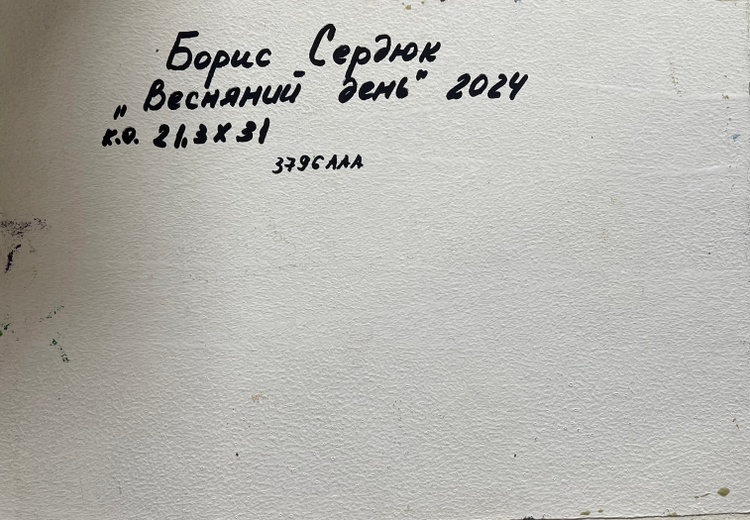 Борис Сердюк
„Весняний день" 2024
к.о. 21,3 х 31
3796ААА